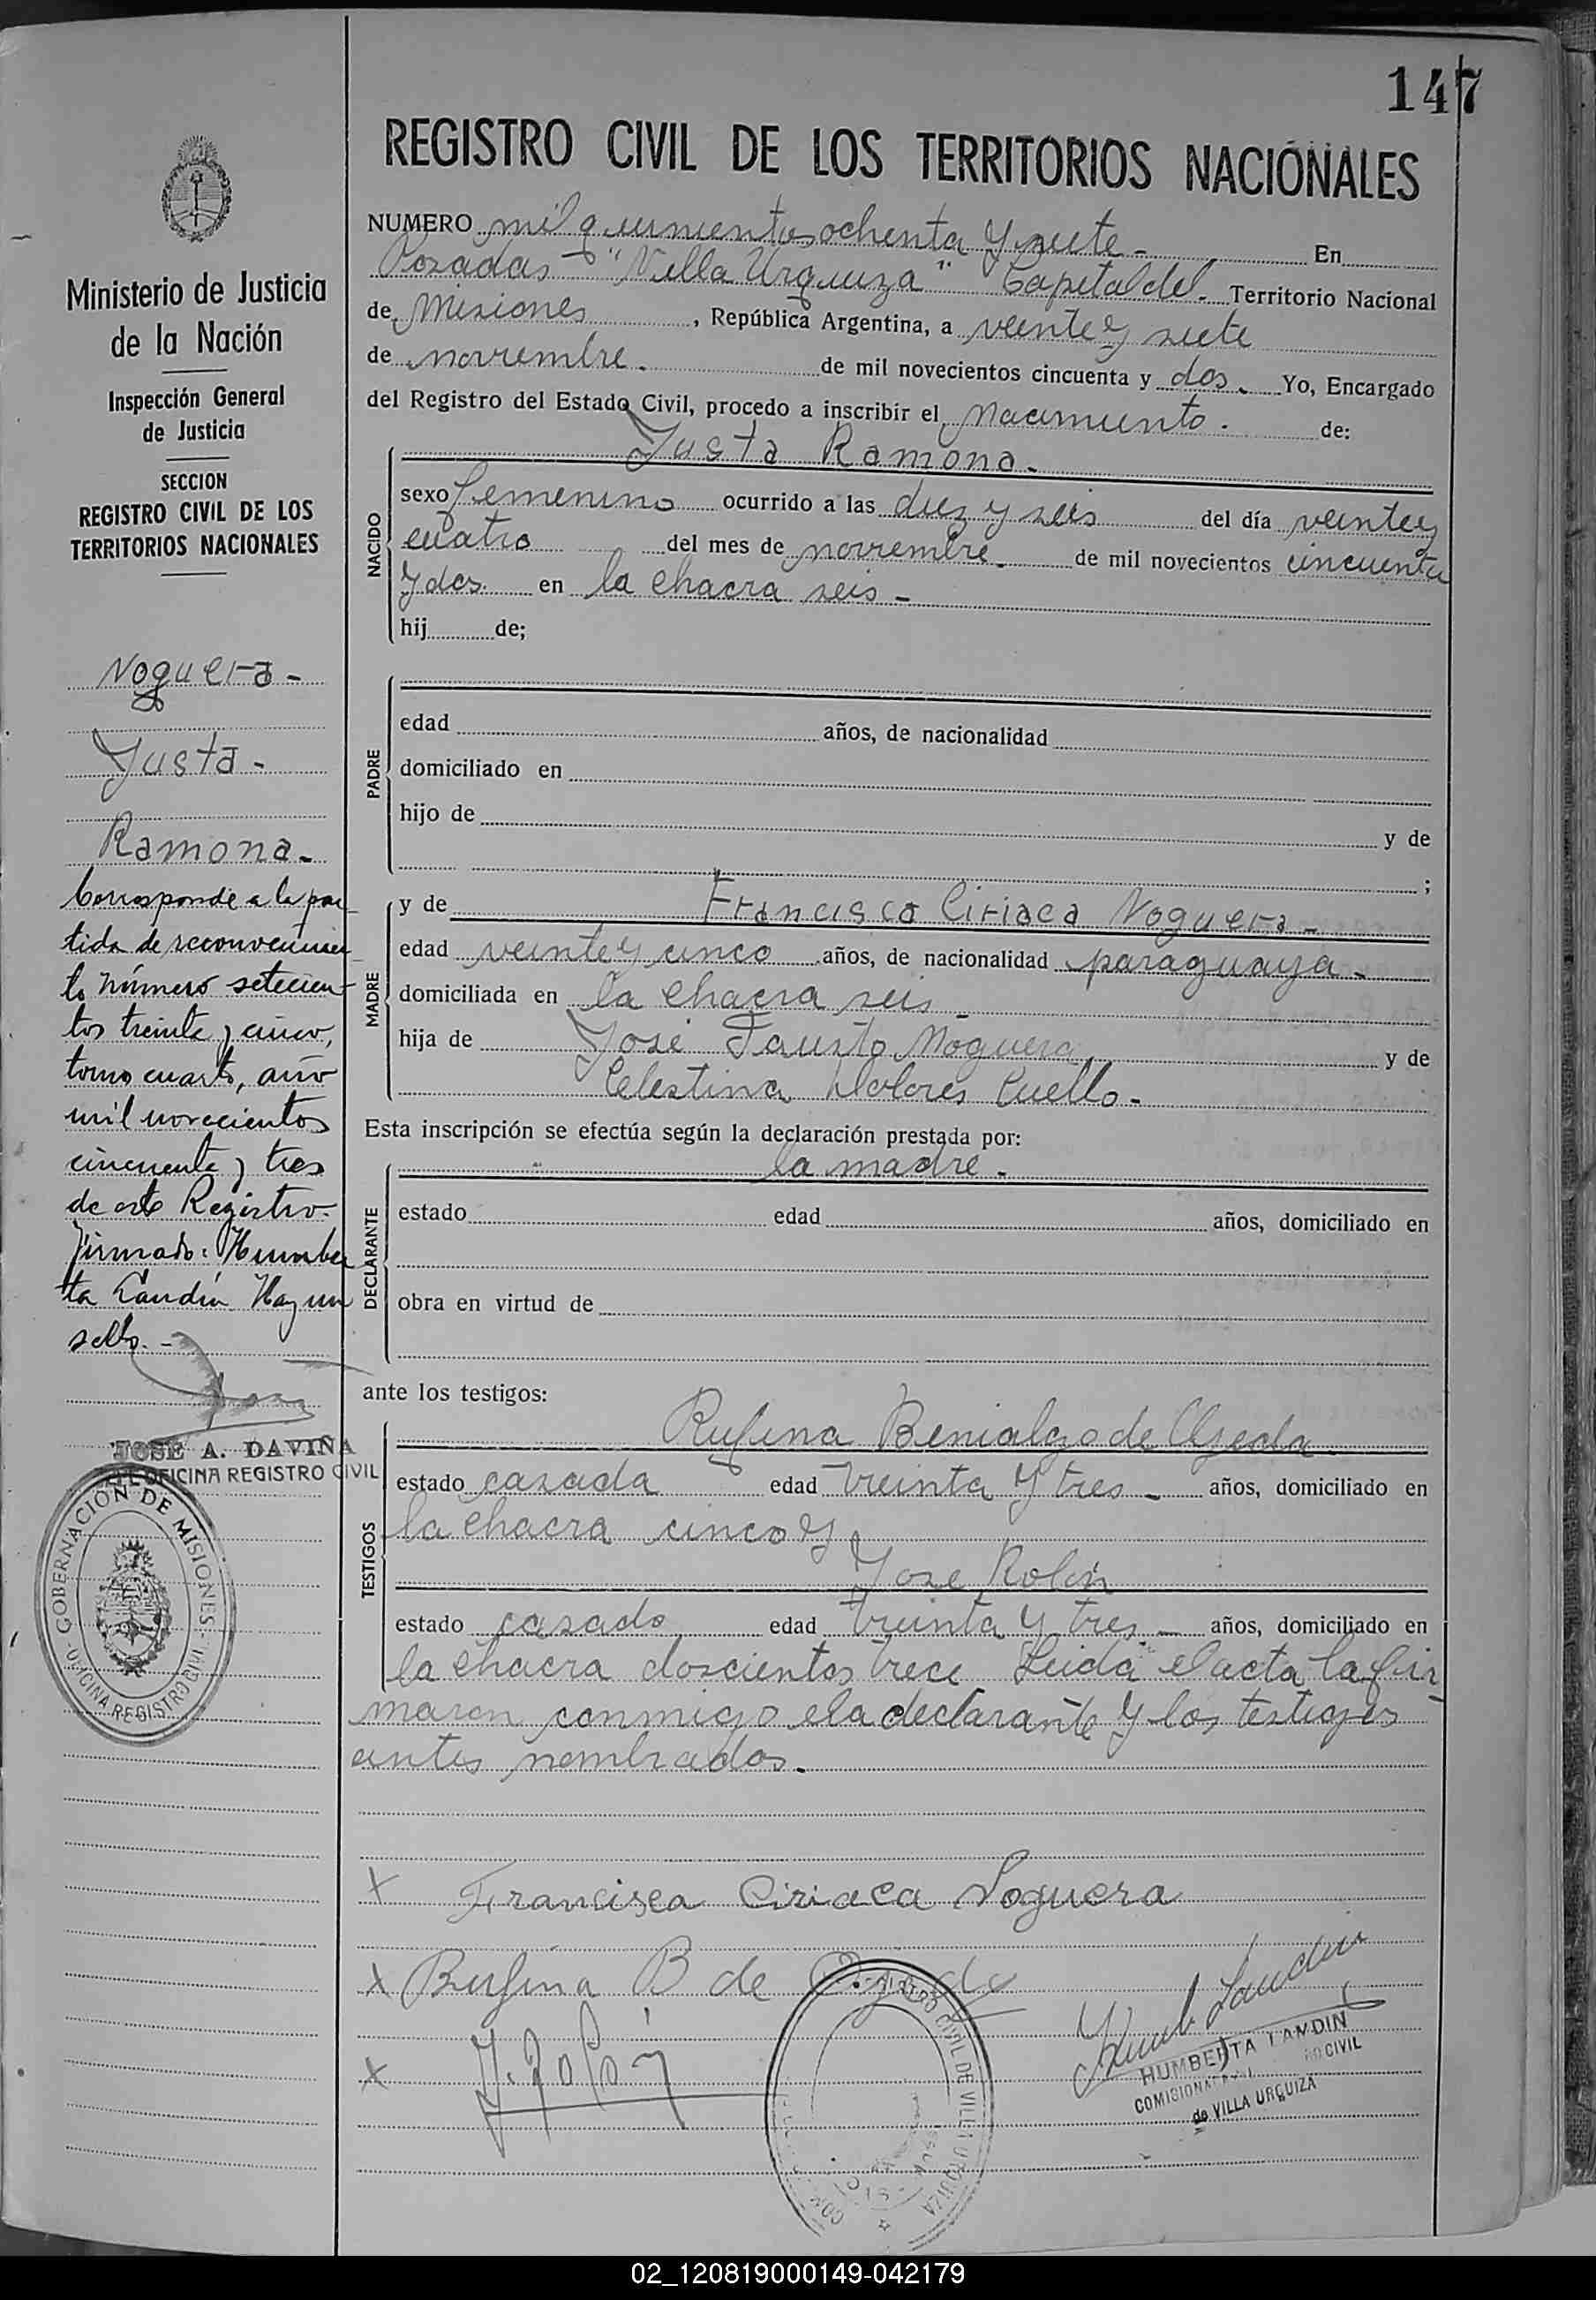 147
REGISTRO CIVIL DE LOS TERRITORIOS NACIONALES
NUMERO mil quinientos ochenta y siete - En
Posadas - "Villa Urquiza" Capital del. Territorio Nacional
de Misiones, República Argentina, a veinte y siete
de noviembre. de mil novecientos cincuenta y dos. Yo, Encargado
del Registro del Estado Civil, procedo a inscribir el Nacimiento. de:
Justa Ramona.
NACIDO
sexo femenino ocurrido a las diez y seis del día veinte y
cuatro del mes de noviembre. de mil novecientos cincuenta
y dos. en la chacra seis -
hij de;
PADRE
edad años, de nacionalidad
domiciliado en
hijo de y de
;
MADRE
y de Francisca Ciriaca Noguera -
edad veinte y cinco años, de nacionalidad paraguaya -
domiciliada en la chacra seis
hija de José Fausto Noguera y de
Celestina Dolores Cuello -
Esta inscripción se efectúa según la declaración prestada por:
DECLARANTE
la madre.
estado edad años, domiciliado en
obra en virtud de
ante los testigos:
TESTIGOS
Rufina Benialgo de Ojeda.
estado casada edad treinta y tres - años, domiciliado en
la chacra cinco y
Jose Rolón
estado casado edad treinta y tres - años, domiciliado en
la chacra doscientos trece Leida el acta la fir
maron conmigo ela declarante y los testigos
antes nombrados.
X Francisca Ciriaca Noguera
X Rufina B de Ojeda
X J. Rolón
HUMBERTA LANDIN
CIVIL
de VILLA URQUIZA
CIVIL DE VILLA URQUIZA
Ministerio de Justicia
de la Nación
Inspección General
de Justicia
SECCION
REGISTRO CIVIL DE LOS
TERRITORIOS NACIONALES
Noguera -
Justa -
Ramona -
Corresponde a la par
tida de reconocimien
to número setecien
tos treinta y cinco,
tomo cuarto, año
mil novecientos
cincuenta y tres
de este Registro.
Firmado: Humber
ta Landín Hay un
sello. -
JOSE A. DAVIÑA
OFICINA REGISTRO CIVIL
GOBERNACION DE MISIONES
OFICINA REGISTRO CIVIL
02_120819000149-042179